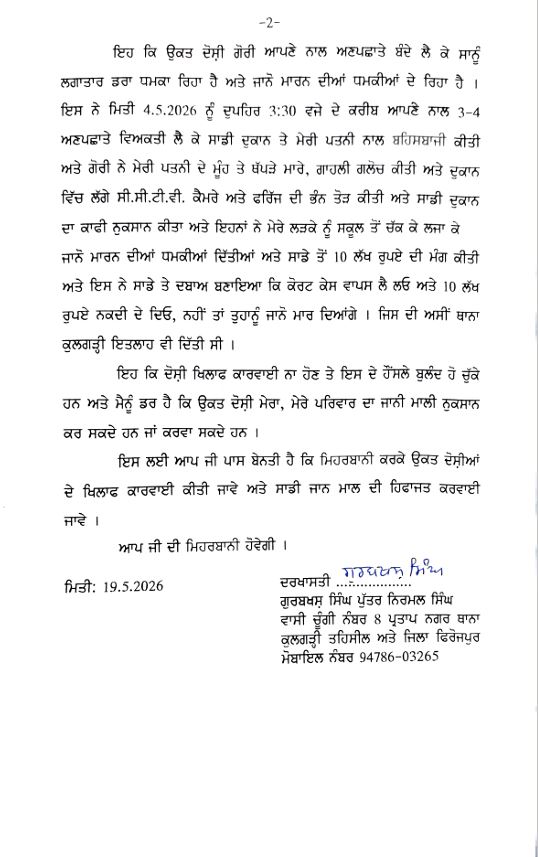 -2-
ਇਹ ਕਿ ਉਕਤ ਦੋਸ਼ੀ ਗੋਰੀ ਆਪਣੇ ਨਾਲ ਅਣਪਛਾਤੇ ਬੰਦੇ ਲੈ ਕੇ ਸਾਨੂੰ
ਲਗਾਤਾਰ ਡਰਾ ਧਮਕਾ ਰਿਹਾ ਹੈ ਅਤੇ ਜਾਨੋ ਮਾਰਨ ਦੀਆਂ ਧਮਕੀਆਂ ਦੇ ਰਿਹਾ ਹੈ ।
ਇਸ ਨੇ ਮਿਤੀ 4.5.2026 ਨੂੰ ਦੁਪਹਿਰ 3:30 ਵਜੇ ਦੇ ਕਰੀਬ ਆਪਣੇ ਨਾਲ 3-4
ਅਣਪਛਾਤੇ ਵਿਅਕਤੀ ਲੈ ਕੇ ਸਾਡੀ ਦੁਕਾਨ ਤੇ ਮੇਰੀ ਪਤਨੀ ਨਾਲ ਬਹਿਸਬਾਜੀ ਕੀਤੀ
ਅਤੇ ਗੋਰੀ ਨੇ ਮੇਰੀ ਪਤਨੀ ਦੇ ਮੂੰਹ ਤੇ ਥੱਪੜੇ ਮਾਰੇ, ਗਾਹਲੀ ਗਲੋਚ ਕੀਤੀ ਅਤੇ ਦੁਕਾਨ
ਵਿੱਚ ਲੱਗੇ ਸੀ.ਸੀ.ਟੀ.ਵੀ. ਕੈਮਰੇ ਅਤੇ ਫਰਿੱਜ ਦੀ ਭੰਨ ਤੋੜ ਕੀਤੀ ਅਤੇ ਸਾਡੀ ਦੁਕਾਨ
ਦਾ ਕਾਫੀ ਨੁਕਸਾਨ ਕੀਤਾ ਅਤੇ ਇਹਨਾਂ ਨੇ ਮੇਰੇ ਲੜਕੇ ਨੂੰ ਸਕੂਲ ਤੋਂ ਚੱਕ ਕੇ ਲਜਾ ਕੇ
ਜਾਨੋ ਮਾਰਨ ਦੀਆਂ ਧਮਕੀਆਂ ਦਿੱਤੀਆਂ ਅਤੇ ਸਾਡੇ ਤੋਂ 10 ਲੱਖ ਰੁਪਏ ਦੀ ਮੰਗ ਕੀਤੀ
ਅਤੇ ਇਸ ਨੇ ਸਾਡੇ ਤੇ ਦਬਾਅ ਬਣਾਇਆ ਕਿ ਕੋਰਟ ਕੇਸ ਵਾਪਸ ਲੈ ਲਓ ਅਤੇ 10 ਲੱਖ
ਰੁਪਏ ਨਕਦੀ ਦੇ ਦਿਓ, ਨਹੀਂ ਤਾਂ ਤੁਹਾਨੂੰ ਜਾਨੋ ਮਾਰ ਦਿਆਂਗੇ । ਜਿਸ ਦੀ ਅਸੀਂ ਥਾਨਾ
ਕੁਲਗੜ੍ਹੀ ਇਤਲਾਹ ਵੀ ਦਿੱਤੀ ਸੀ ।
ਇਹ ਕਿ ਦੋਸ਼ੀ ਖਿਲਾਫ ਕਾਰਵਾਈ ਨਾ ਹੋਣ ਤੇ ਇਸ ਦੇ ਹੌਂਸਲੇ ਬੁਲੰਦ ਹੋ ਚੁੱਕੇ
ਹਨ ਅਤੇ ਮੈਨੂੰ ਡਰ ਹੈ ਕਿ ਉਕਤ ਦੋਸ਼ੀ ਮੇਰਾ, ਮੇਰੇ ਪਰਿਵਾਰ ਦਾ ਜਾਨੀ ਮਾਲੀ ਨੁਕਸਾਨ
ਕਰ ਸਕਦੇ ਹਨ ਜਾਂ ਕਰਵਾ ਸਕਦੇ ਹਨ ।
ਇਸ ਲਈ ਆਪ ਜੀ ਪਾਸ ਬੇਨਤੀ ਹੈ ਕਿ ਮਿਹਰਬਾਨੀ ਕਰਕੇ ਉਕਤ ਦੋਸ਼ੀਆਂ
ਦੇ ਖਿਲਾਫ ਕਾਰਵਾਈ ਕੀਤੀ ਜਾਵੇ ਅਤੇ ਸਾਡੀ ਜਾਨ ਮਾਲ ਦੀ ਹਿਫਾਜਤ ਕਰਵਾਈ
ਜਾਵੇ ।
ਆਪ ਜੀ ਦੀ ਮਿਹਰਬਾਨੀ ਹੋਵੇਗੀ ।
ਗੁਰਬਖਸ਼ ਸਿੰਘ
ਮਿਤੀ: 19.5.2026 ਦਰਖਾਸਤੀ ...................
ਗੁਰਬਖਸ਼ ਸਿੰਘ ਪੁੱਤਰ ਨਿਰਮਲ ਸਿੰਘ
ਵਾਸੀ ਚੁੰਗੀ ਨੰਬਰ 8 ਪ੍ਰਤਾਪ ਨਗਰ ਥਾਨਾ
ਕੁਲਗੜ੍ਹੀ ਤਹਿਸੀਲ ਅਤੇ ਜਿਲਾ ਫਿਰੋਜਪੁਰ
ਮੋਬਾਇਲ ਨੰਬਰ 94786-03265